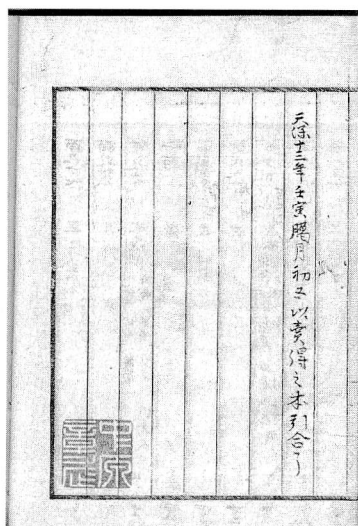 天保十三年壬寅臈月初五以賣得之本引合了